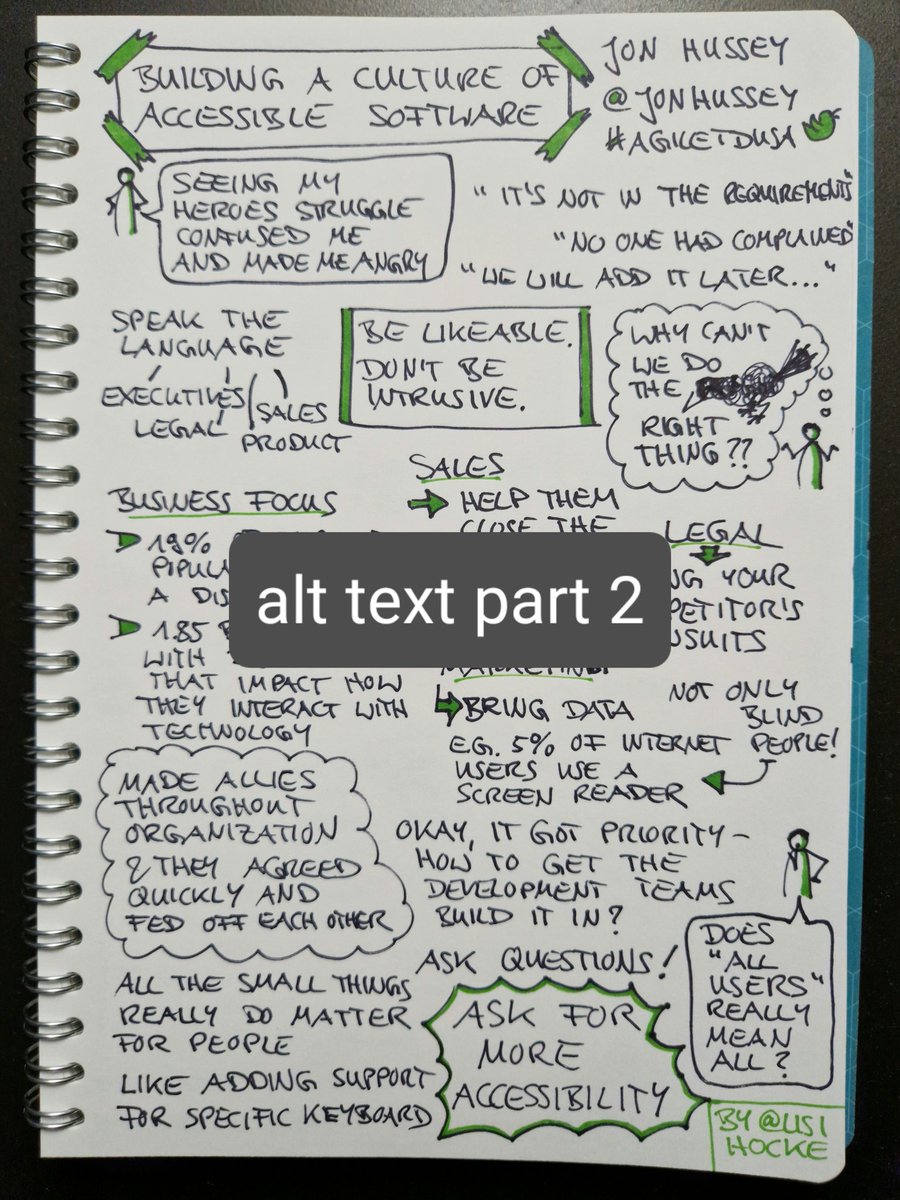 BUILDING A CULTURE OF
ACCESSIBLE SOFTWARE
JON HUSSEY
@JONHUSSEY
#AGILETDUSA
SEEING MY
HEROES STRUGGLE
CONFUSED ME
AND MADE ME ANGRY
"IT'S NOT IN THE REQUIREMENTS"
"NO ONE HAD COMPLAINED"
"WE WILL ADD IT LATER..."
SPEAK THE
LANGUAGE
EXECUTIVES
LEGAL
SALES
PRODUCT
BE LIKEABLE.
DON'T BE
INTRUSIVE.
WHY CAN'T
WE DO
THE
RIGHT
THING??
BUSINESS FOCUS
19%
A DIS
1.85
WITH
THAT IMPACT HOW
THEY INTERACT WITH
TECHNOLOGY
SALES
HELP THEM
CLOSE THE
LEGAL
NG YOUR
PETITOR'S
SUITS
alt text part 2
MARKETING
BRING DATA
E.G. 5% OF INTERNET
USERS USE A
SCREEN READER
NOT ONLY
BLIND
PEOPLE!
MADE ALLIES
THROUGHOUT
ORGANIZATION
& THEY AGREED
QUICKLY AND
FED OFF EACH OTHER
OKAY, IT GOT PRIORITY -
HOW TO GET THE
DEVELOPMENT TEAMS
BUILD IT IN?
ASK QUESTIONS!
DOES
"ALL
USERS"
REALLY
MEAN
ALL?
ALL THE SMALL THINGS
REALLY DO MATTER
FOR PEOPLE
LIKE ADDING SUPPORT
FOR SPECIFIC KEYBOARD
ASK FOR
MORE
ACCESSIBILITY
BY @LISI
HOCKE